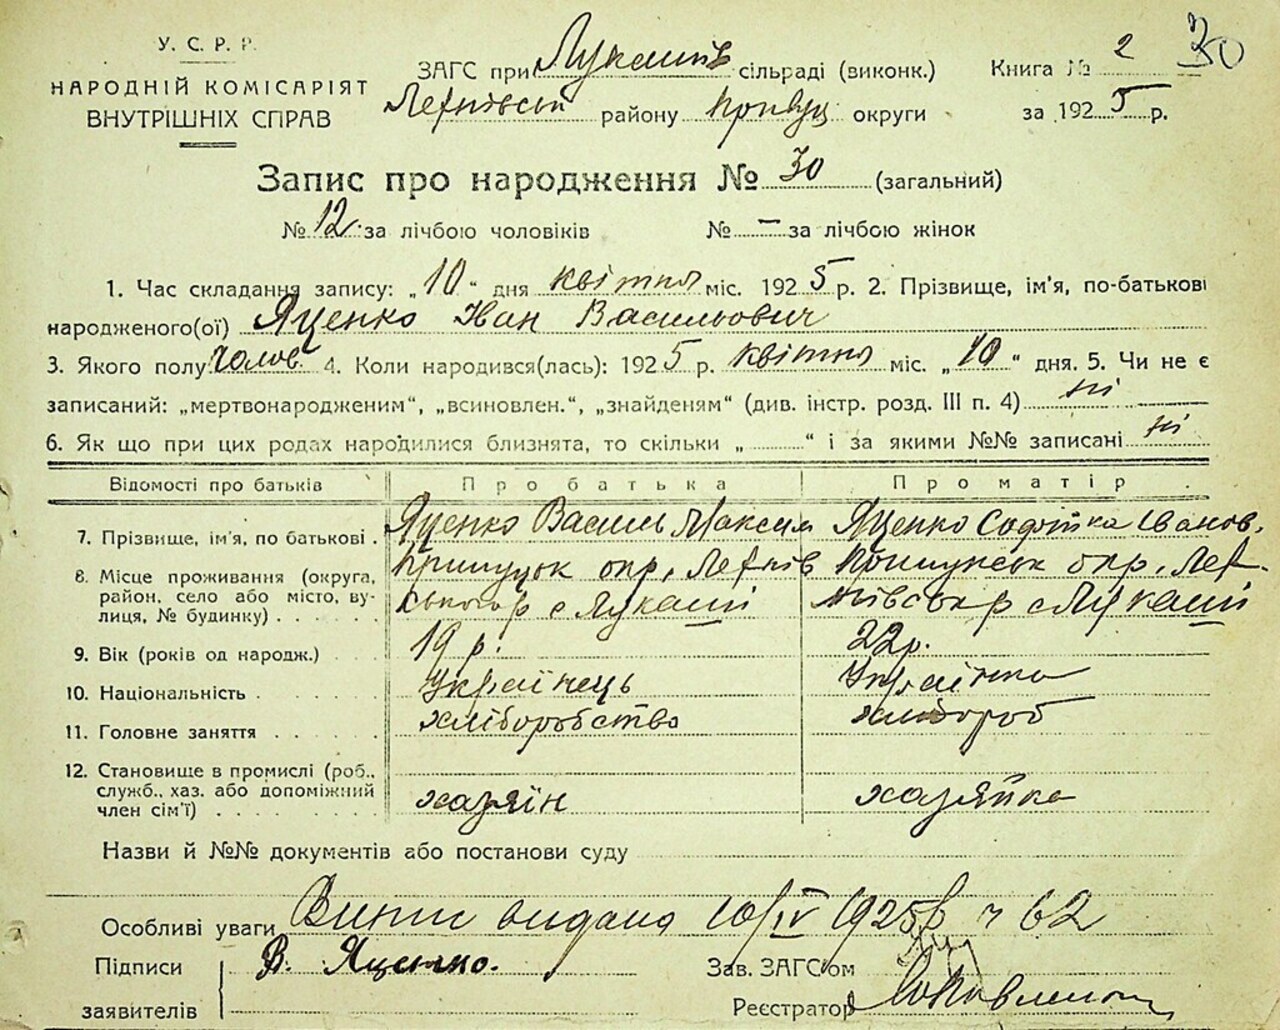 У. С. Р. Р.
НАРОДНІЙ КОМІСАРІЯТ
ВНУТРІШНІХ СПРАВ
30
ЗАГС при Лукашів сільраді (виконк.) Книга № 2
району округи за 1925 р.
Запис про народження № 30 (загальний)
№ 12. за лічбою чоловіків № — за лічбою жінок
1. Час складання запису: „10“ дня квітня міс. 1925 р. 2. Прізвище, ім'я, по-батькові
народженого(ої) Яценко Іван Васильович
3. Якого полу чолов. 4. Коли народився(лась): 1925 р. квітня міс. „10“ дня. 5. Чи не є
записаний: „мертвонародженим“, „всиновлен.“, „знайденям“ (див. інстр. розд. III п. 4) ні
6. Як що при цих родах народилися близнята, то скільки „ “ і за якими №№ записані ні
Відомості про батьків Про батька Про матір
7. Прізвище, ім'я, по батькові Яценко Василь Максим Яценко Софійка Іванов.
8. Місце проживання (округа, опр. опр.
район, село або місто, ву- с Лукаші с Лукаші
лиця, № будинку)
9. Вік (років од народж.) 19 р. 22 р.
10. Національність Українець Українка
11. Головне заняття хліборобство хлібороб
12. Становище в промислі (роб.,
служб., хаз. або допоміжний хазяїн хазяйка
член сім'ї)
Назви й №№ документів або постанови суду
Особливі уваги видана 10/IV 1925 62
Підписи В. Яценко. Зав. ЗАГС'ом
заявителів Реєстратор